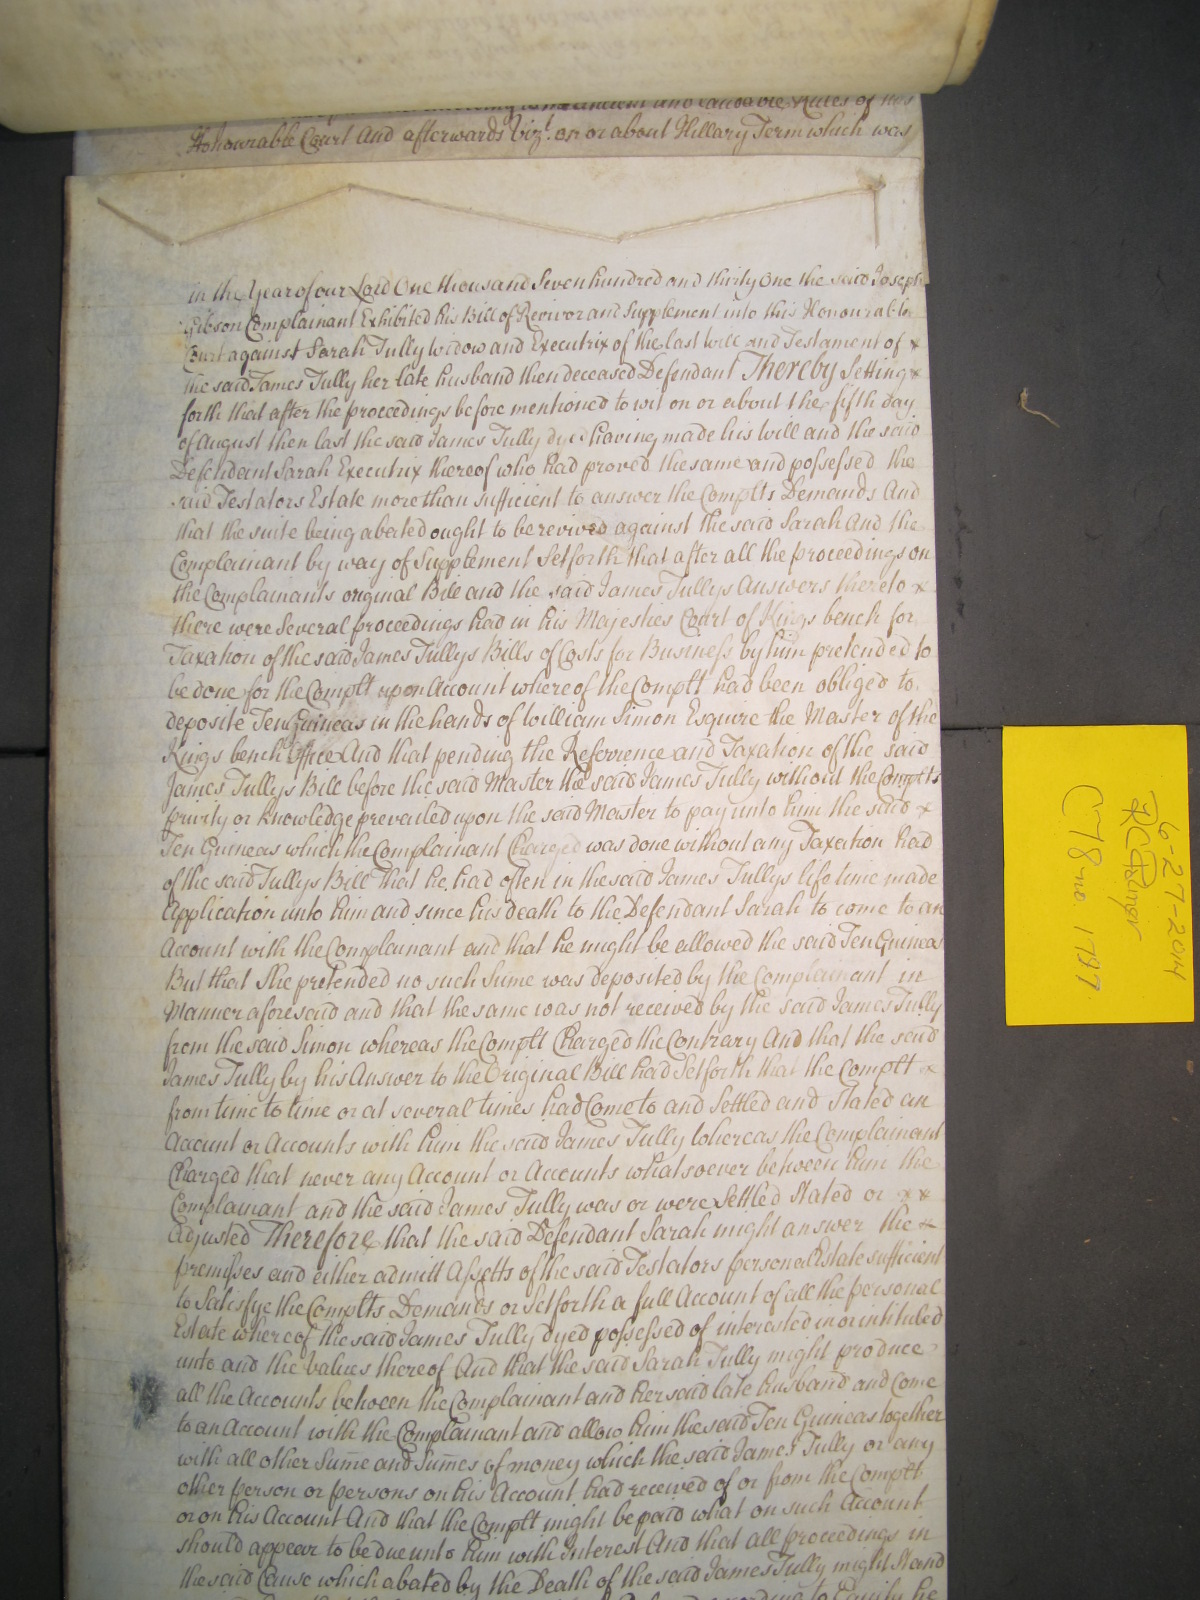 Ancient and Laudable Rules of this
Honourable Court And afterwards vizt. on or about Hillary Term which was
in the Year of our Lord One thousand Seven hundred and thirty One the said Joseph
Gibson Complainant Exhibited his Bill of Revivor and Supplement into this Honourable
Court against Sarah Tully widow and Executrix of the last will and Testament of x
the said James Tully her late husband then deceased Defendant Thereby Setting x
forth that after the proceedings before mentioned to wit on or about the fifth day
of August then last the said James Tully dyed having made his will and the said
Defendant Sarah Executrix thereof who had proved the same and possessed the
said Testators Estate more than sufficient to answer the Complts Demands And
that the suite being abated ought to be revived against the said Sarah And the
Complainant by way of Supplement Setforth that after all the proceedings on
the Complainants original Bill and the said James Tullys Answers thereto x
there were Several proceedings had in his Majesties Court of Kings bench for
Taxation of the said James Tullys Bills of Costs for Business by him pretended to
be done for the Complt upon Account whereof the Complt had been obliged to
deposite Ten Guineas in the hands of William Simon Esquire the Master of the
Kings bench Office And that pending the Referrence and Taxation of the said
James Tullys Bill before the said Master the said James Tully without the Complts
privity or knowledge prevailed upon the said Master to pay unto him the said x
Ten Guineas which the Complainant Charged was done without any Taxation had
of the said Tullys Bill That he had often in the said James Tullys life time made
Application unto him and since his death to the Defendant Sarah to come to an
Account with the Complainant and that he might be allowed the said Ten Guineas
But that she pretended no such Sume was deposited by the Complainant in
Manner aforesaid and that the same was not received by the said James Tully
from the said Simon whereas the Complt Charged the Contrary And that the said
James Tully by his Answer to the Original Bill had Setforth that the Complt x
from time to time or at several times had Come to and Settled and stated an
Account or Accounts with him the said James Tully Whereas the Complainant
Charged that never any Account or Accounts whatsoever between him the
Complainant and the said James Tully was or were Settled Stated or x x
Adjusted Therefore that the said Defendant Sarah might answer the x
premisses and either admitt Assetts of the said Testators personal Estate sufficient
to Satisfye the Complts Demands or Setforth a full Account of all the personal
Estate whereof the said James Tully dyed possessed of interested in or intituled
unto and the Values thereof And that the said Sarah Tully might produce
all the Accounts between the Complainant and her said late husband and Come
to an Account with the Complainant and allow him the said Ten Guineas together
with all other Sume and Sumes of money which the said James Tully or any
other person or persons on his Account had received of or from the Complt
or on his Account And that the Complt might be paid what on such Account
should appear to be due unto him with Interest And that all proceedings in
the said Cause which abated by the Death of the said James Tully might Stand
to Equity he
6-27-2014
C78 no. 1797